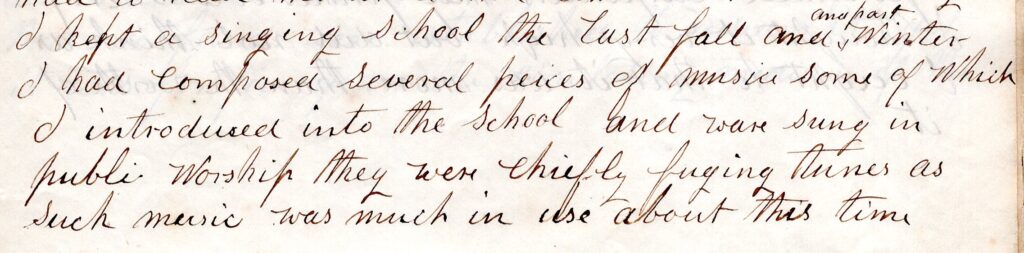 I kept a singing school the last fall and and past Winter
I had composed several peices of music some of Which
I introduced into the school and ware sung in
public Worship they were chiefly fuging tunes as
such music was much in use about this time